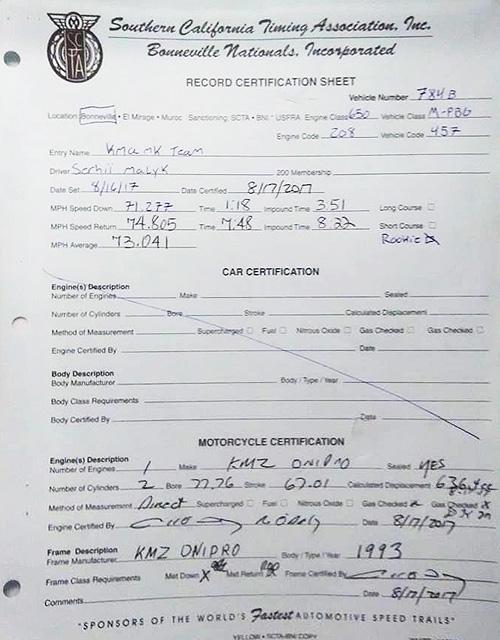 Southern California Timing Association, Inc.
Bonneville Nationals, Incorporated
SCTA
RECORD CERTIFICATION SHEET
Vehicle Number 784B
Location: Bonneville • El Mirage • Muroc Sanctioning: SCTA • BNI • USFRA Engine Class 650 Vehicle Class M-PBG
Engine Code 208 Vehicle Code 457
Entry Name KMZ MK Team
Driver Serhii Malyk 200 Membership
Date Set 8/16/17 Date Certified 8/17/2017
MPH Speed Down 71.277 Time 1:18 Impound Time 3:51 Long Course
MPH Speed Return 74.805 Time 7:48 Impound Time 8:22 Short Course
MPH Average 73.041 Rookie
CAR CERTIFICATION
Engine(s) Description
Number of Engines Make Sealed
Number of Cylinders Bore Stroke Calculated Displacement
Method of Measurement Supercharged Fuel Nitrous Oxide Gas Checked Gas Checked
Engine Certified By Date
Body Description
Body Manufacturer Body / Type / Year
Body Class Requirements
Body Certified By Date
MOTORCYCLE CERTIFICATION
Engine(s) Description
Number of Engines 1 Make KMZ DNIPRO Sealed YES
Number of Cylinders 2 Bore 77.76 Stroke 67.01 Calculated Displacement
Method of Measurement Direct Supercharged Fuel Nitrous Oxide Gas Checked Gas Checked
Engine Certified By Date 8/17/2017
Frame Description
Frame Manufacturer KMZ DNIPRO Body / Type / Year 1993
Frame Class Requirements Met Down X Met Return Frame Certified By
Comments Date 8/17/2017
"SPONSORS OF THE WORLD'S Fastest AUTOMOTIVE SPEED TRIALS"
YELLOW • SCTA-BNI COPY